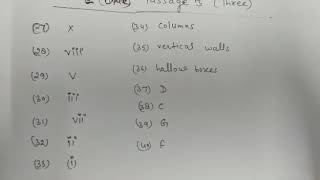 Passage 3 (Three)
(27) x
(28) viii
(29) v
(30) iii
(31) vii
(32) ii
(33) (i)
(34) columns
(35) vertical walls
(36) hallow boxes
(37) D
(38) C
(39) G
(40) F